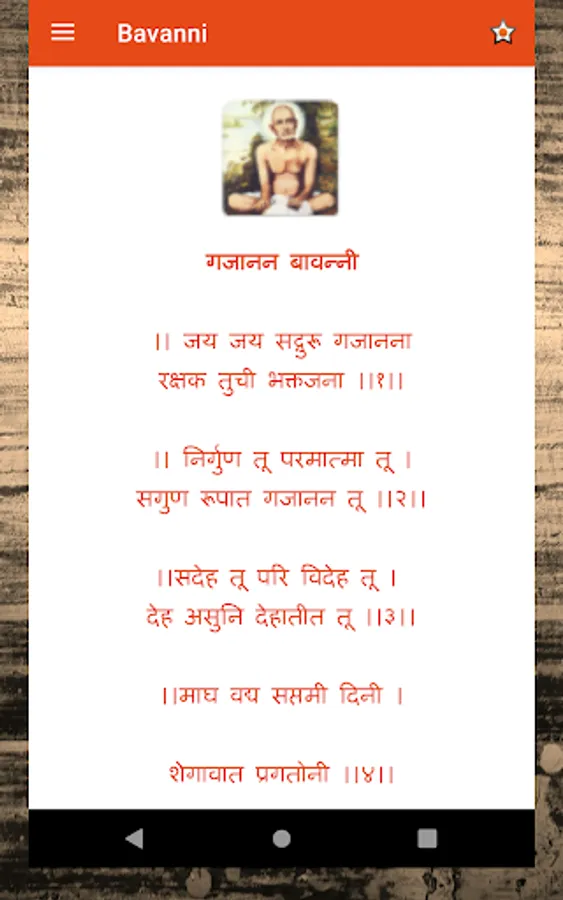 Bavanni
गजानन बावन्नी
।। जय जय सद्गुरू गजानना
रक्षक तुची भक्तजना ।।१।।
।। निर्गुण तू परमात्मा तू ।
सगुण रूपात गजानन तू ।।२।।
।।सदेह तू परि विदेह तू ।
देह असुनि देहातीत तू ।।३।।
।।माघ वद्य सप्तमी दिनी ।
शेगावात प्रगतोनी ।।४।।